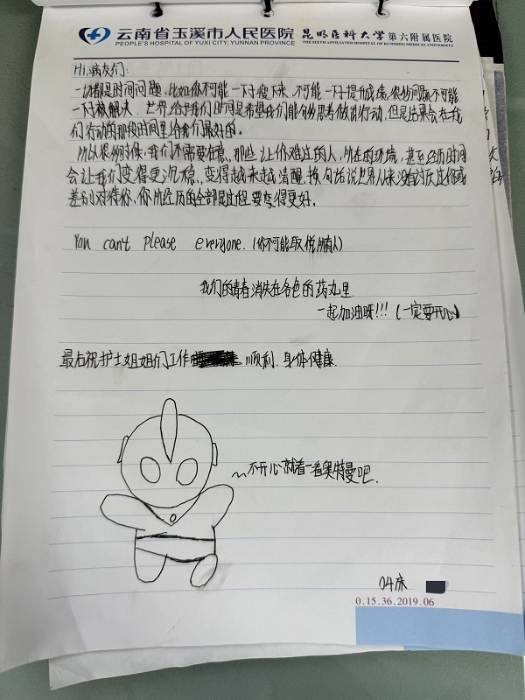 云南省玉溪市人民医院 昆明医科大学第六附属医院
PEOPLE'S HOSPITAL OF YUXI CITY, YUNNAN PROVINCE THE SIXTH AFFILIATED HOSPITAL OF KUNMING MEDICAL UNIVERSITY
Hi,病友们:
一切都是时间问题,比如你不可能一下子瘦下来,不可能一下子提升成绩,很多问题不可能
一下子被解决,世界给予我们时间是希望我们能多思考做前行动,但是结果会在我
们行动的那段时间里给我们最好的。
所以很多时候,我们不需要在意,那些让你难过的人,所在的环境,甚至经历时间
会让我们变得更沉稳,变得越来越清醒,换句话说世界从来没有讨厌过你或
差别对待你,你所经历的全部是过程,要变得更好。
You can't please everyone.(你不可能取悦所有人)
我们的青春消失在各色的药丸里
一起加油呀!!!(一定要开心)
最后祝护士姐姐们工作 顺利,身体健康.
~不开心就看一看奥特曼吧.
04床
0.15.36.2019.06